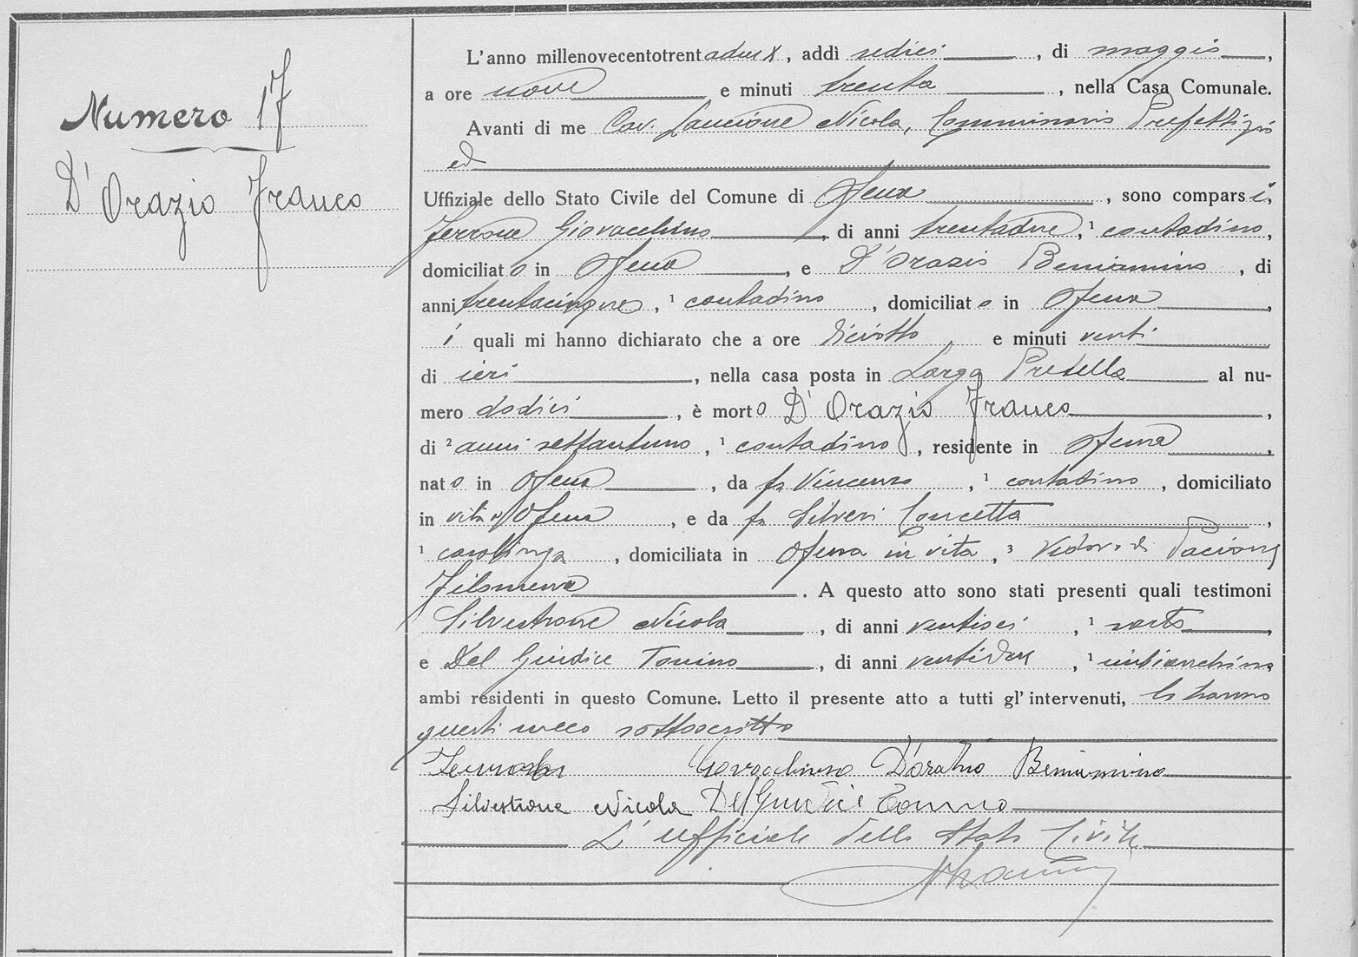 Numero 17
D'Orazio Franco
L'anno millenovecentotrentadue X, addì sedici, di maggio,
a ore nove e minuti trenta, nella Casa Comunale.
Avanti di me Cav. Nicola, Commissario Prefettizio
ed
Uffiziale dello Stato Civile del Comune di Ofena, sono comparsi
Ferrone Giovacchino, di anni trentadue, ¹ contadino,
domiciliato in Ofena, e D'Orazio Beniamino, di
anni trentacinque, ¹ contadino, domiciliato in Ofena,
i quali mi hanno dichiarato che a ore diciotto e minuti venti
di ieri, nella casa posta in Larga Predella al nu-
mero dodici, è morto D'Orazio Franco,
di ² anni settantuno, ¹ contadino, residente in Ofena,
nato in Ofena, da fu Vincenzo, ¹ contadino, domiciliato
in vita in Ofena, e da fu Silveri Concetta,
¹ casalinga, domiciliata in Ofena in vita, ³ vedovo di
Filomena. A questo atto sono stati presenti quali testimoni
Silvestrone Nicola, di anni ventisei, ¹ sarto,
e Del Giudice Tonino, di anni ventidue, ¹ imbianchino
ambi residenti in questo Comune. Letto il presente atto a tutti gl'intervenuti, lo hanno
questi meco sottoscritto
Ferrone Giovacchino D'Orazio Beniamino
Silvestrone Nicola Del Giudice Tonino
L'ufficiale dello Stato Civile